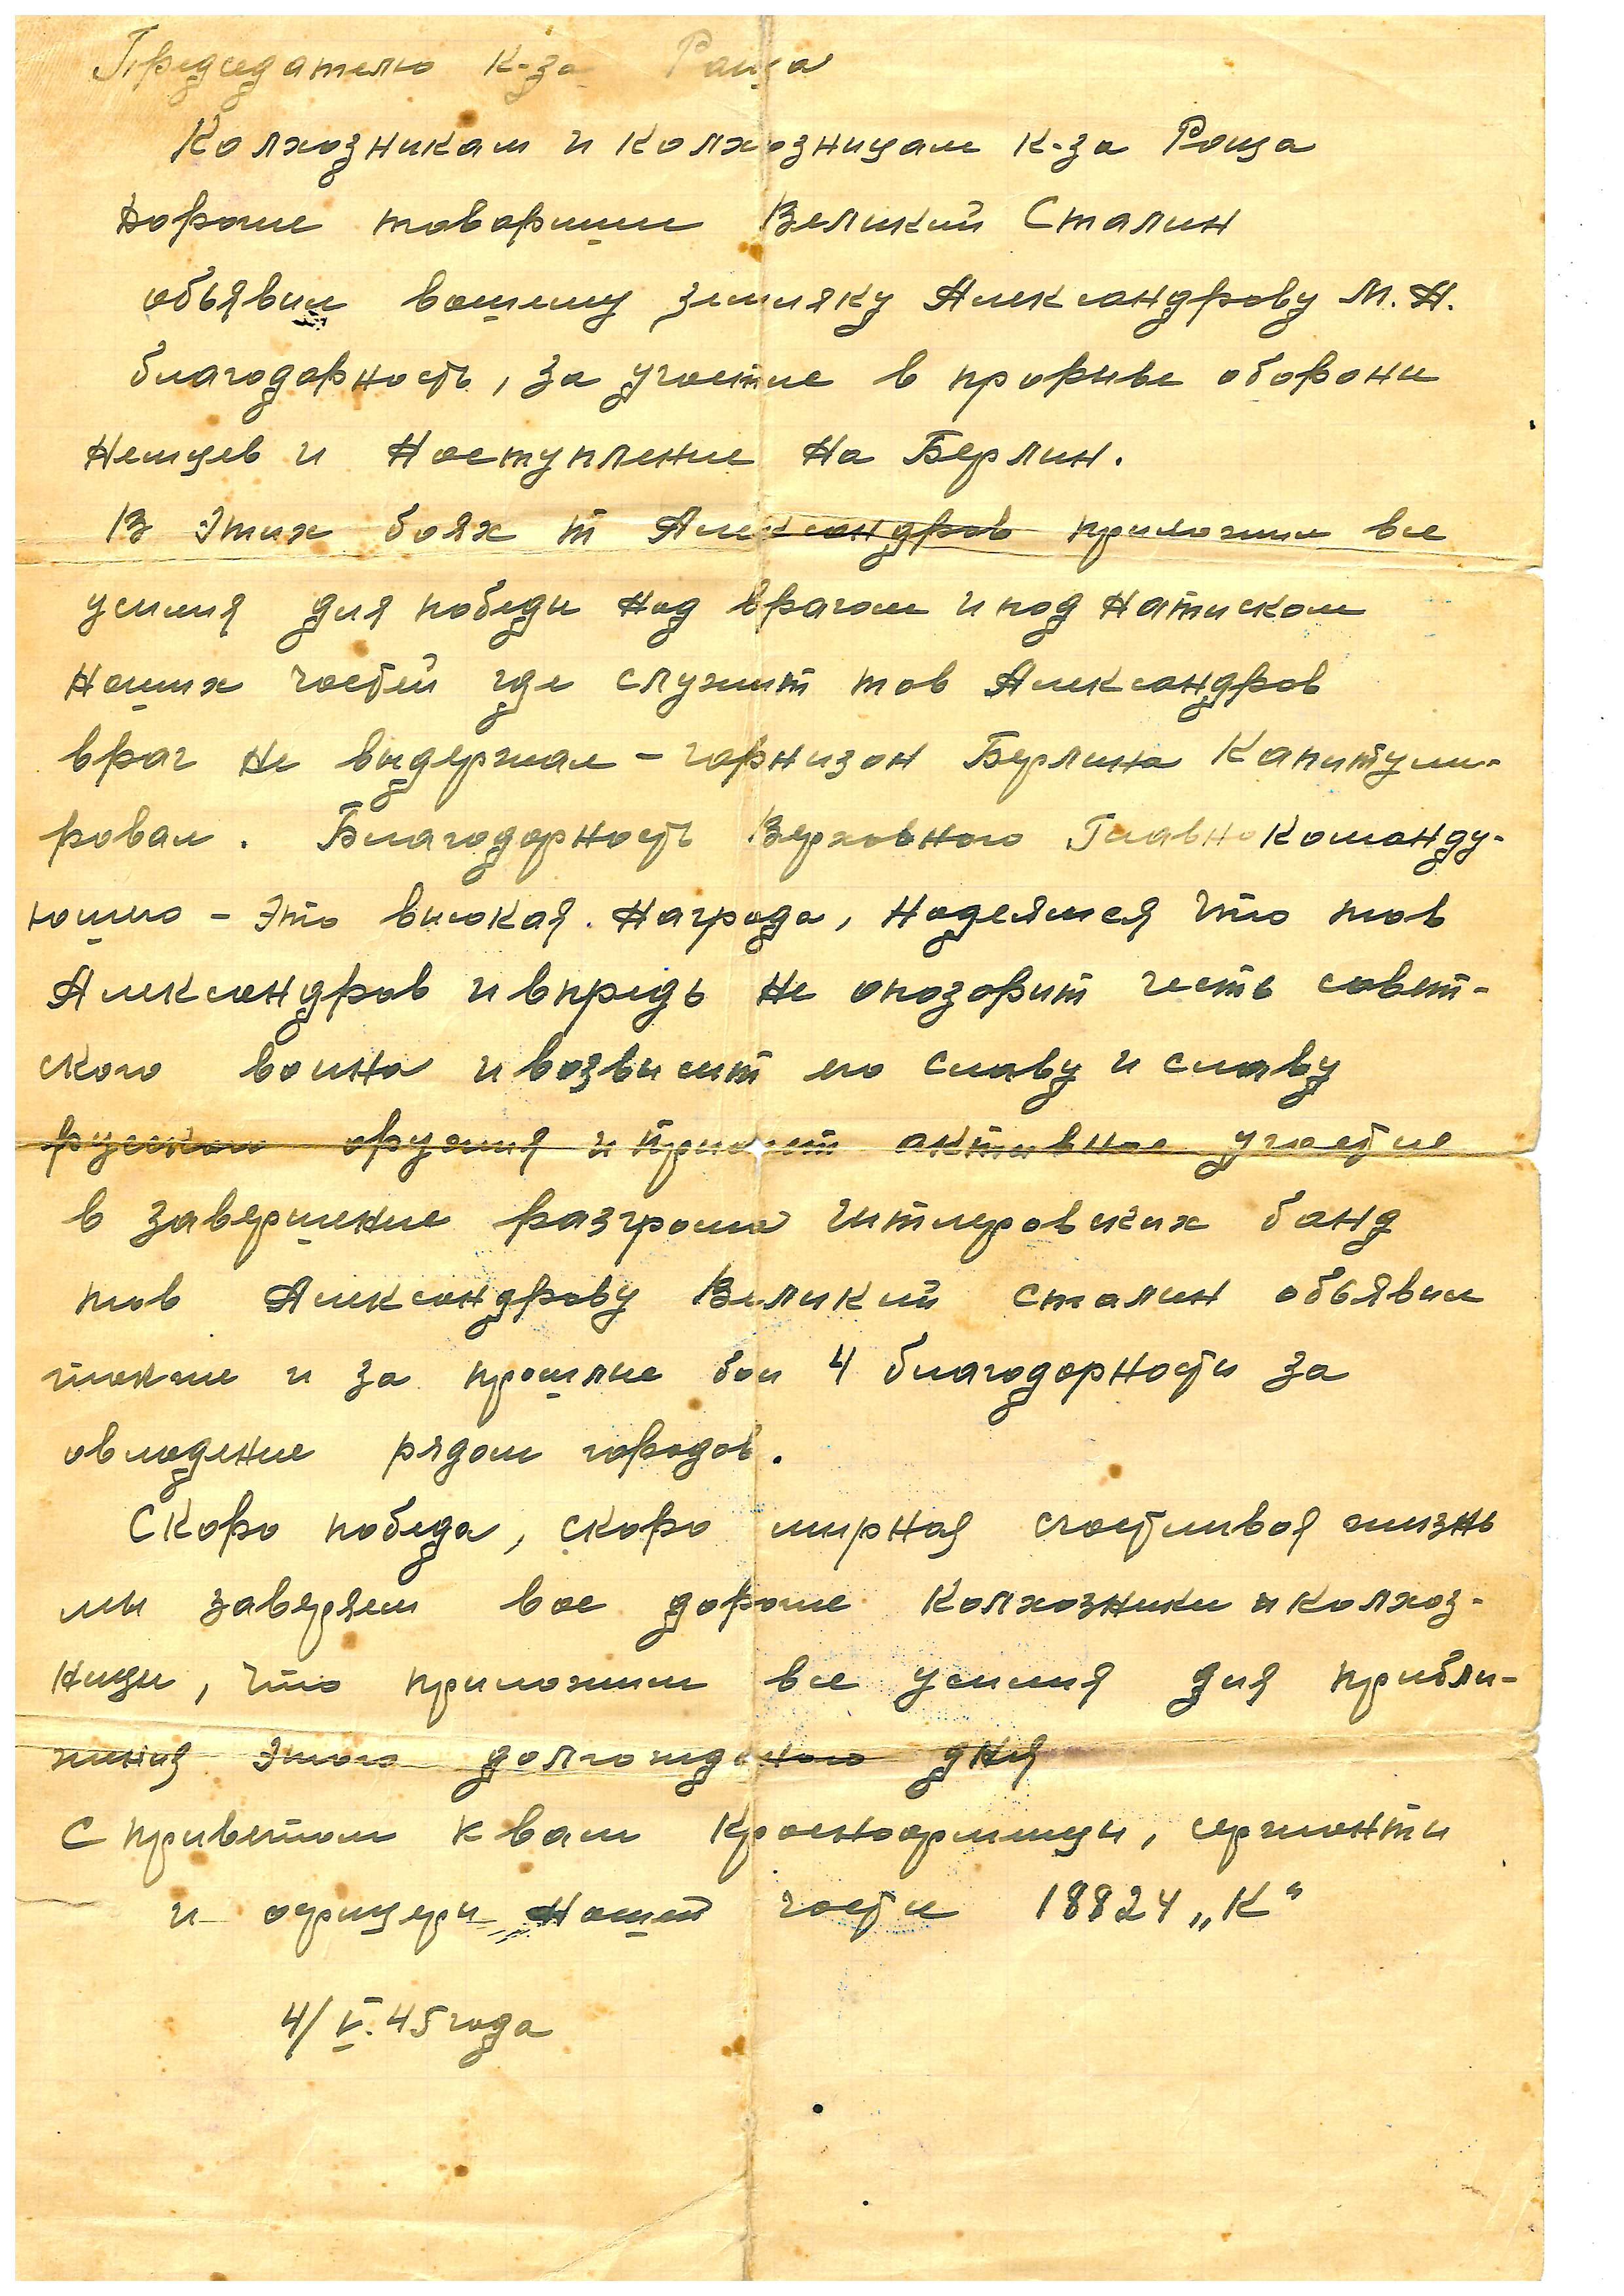 Председателю к-за Роща
Колхозникам и колхозницам к-за Роща
Дорогие товарищи Великий Сталин
объявил вашему земляку Александрову М. Н.
благодарность, за участие в прорыве обороны
Немцев и Наступление На Берлин.
В Этих боях т Александров приложил все
усилия для победы над врагом и под Натиском
Наших частей где служит тов Александров
враг Не выдержал – гарнизон Берлина Капитули-
ровал. Благодарность Верховного Главнокоманду-
ющего – Это высокая Награда, Надеемся что тов
Александров и впредь Не опозорит честь совет-
ского воина и возвысит его славу и славу
русского оружия и примет активное участие
в завершение разгрома гитлеровских банд
тов Александрову Великий сталин объявил
также и за прошлые бои 4 благодарности за
овладение рядом городов.
Скоро победа, скоро мирная счастливая жизнь
мы заверяем вас дорогие колхозники и колхоз-
ницы, что приложим все усилия для прибли-
жения Этого долгожданого дня
С приветом к вам Красноармейцы, сержанты
и офицеры Нашей части 18824 „К"
4/V. 45 года